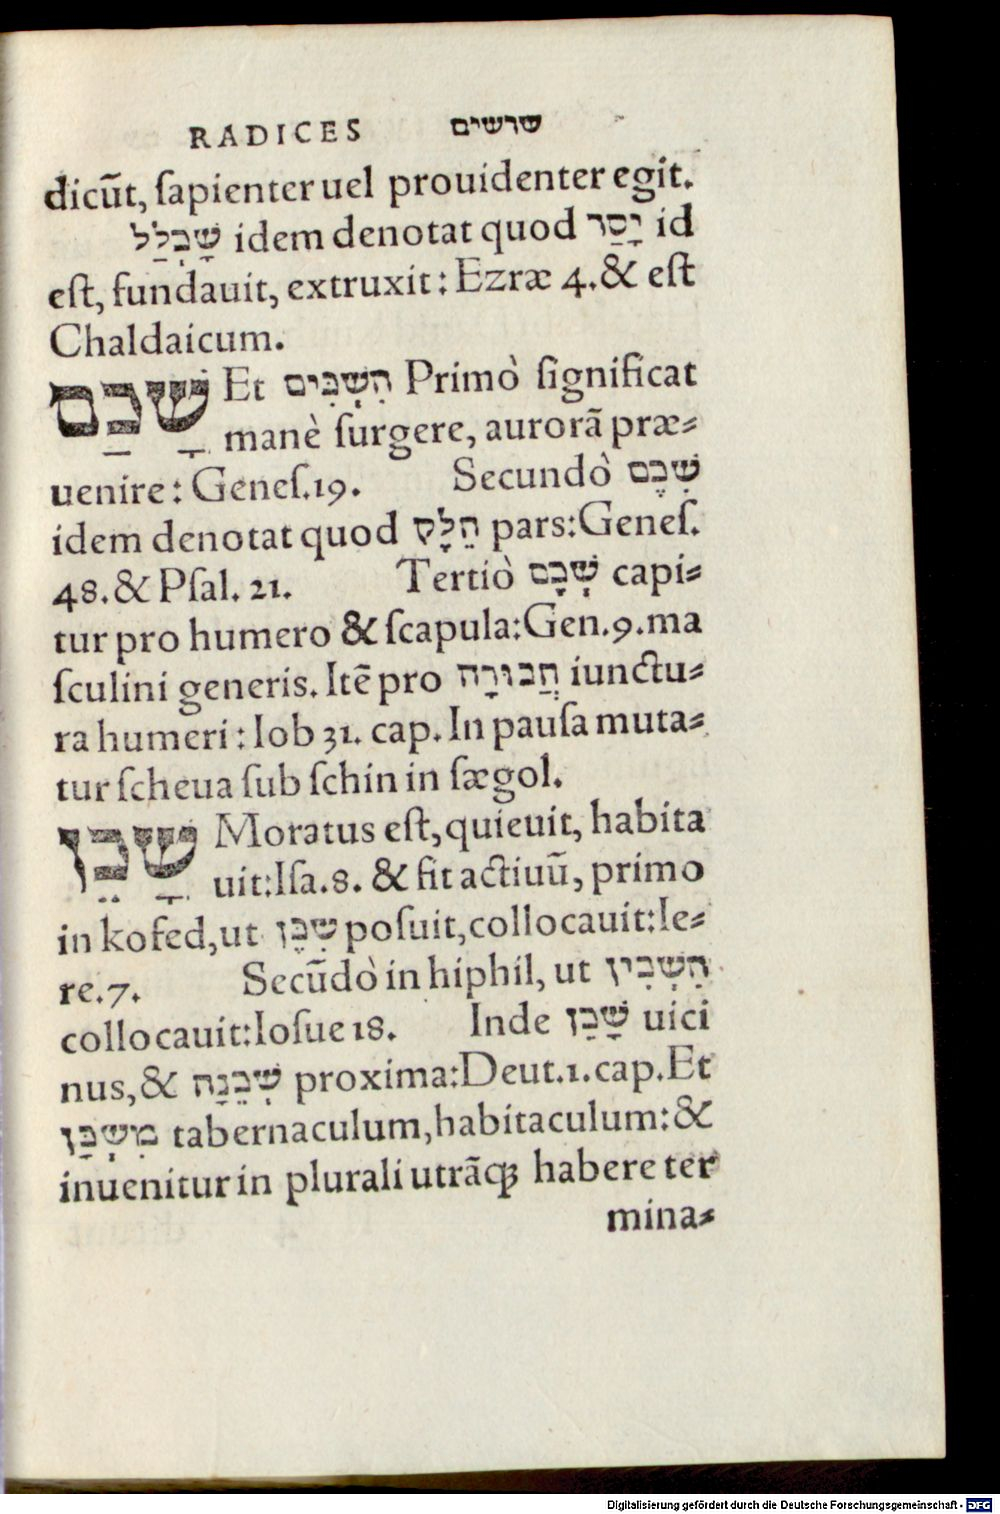 RADICES שרשים
dicūt, ſapienter uel prouidenter egit.
שָׁכְלַל idem denotat quod יָסַר id
eſt, fundauit, extruxit: Ezræ 4. & eſt
Chaldaicum.
שָׁכַם Et הִשְׁכִּים Primò ſignificat
manè ſurgere, aurorā præ⸗
uenire: Geneſ.19. Secundò שְׁכֶם
idem denotat quod חֵלָק pars: Geneſ.
48. & Pſal. 21. Tertiò שְׁכָם capi⸗
tur pro humero & ſcapula: Gen.9. ma
ſculini generis. Itē pro חֲבוּרָה iunctu⸗
ra humeri: Iob 31. cap. In pauſa muta⸗
tur ſcheua ſub ſchin in ſægol.
שָׁכַן Moratus eſt, quieuit, habita
uit: Iſa.8. & fit actiuū, primo
in kofed, ut שִׁכֶּן poſuit, collocauit: Ie⸗
re.7. Secūdò in hiphil, ut הִשְׁכִּין
collocauit: Ioſue 18. Inde שָׁכַן uici
nus, & שְׁכֵנָה proxima: Deut.1. cap. Et
מִשְׁכָּן tabernaculum, habitaculum: &
inuenitur in plurali utrāq; habere ter
mina⸗
Digitalisierung gefördert durch die Deutsche Forschungsgemeinschaft - DFG